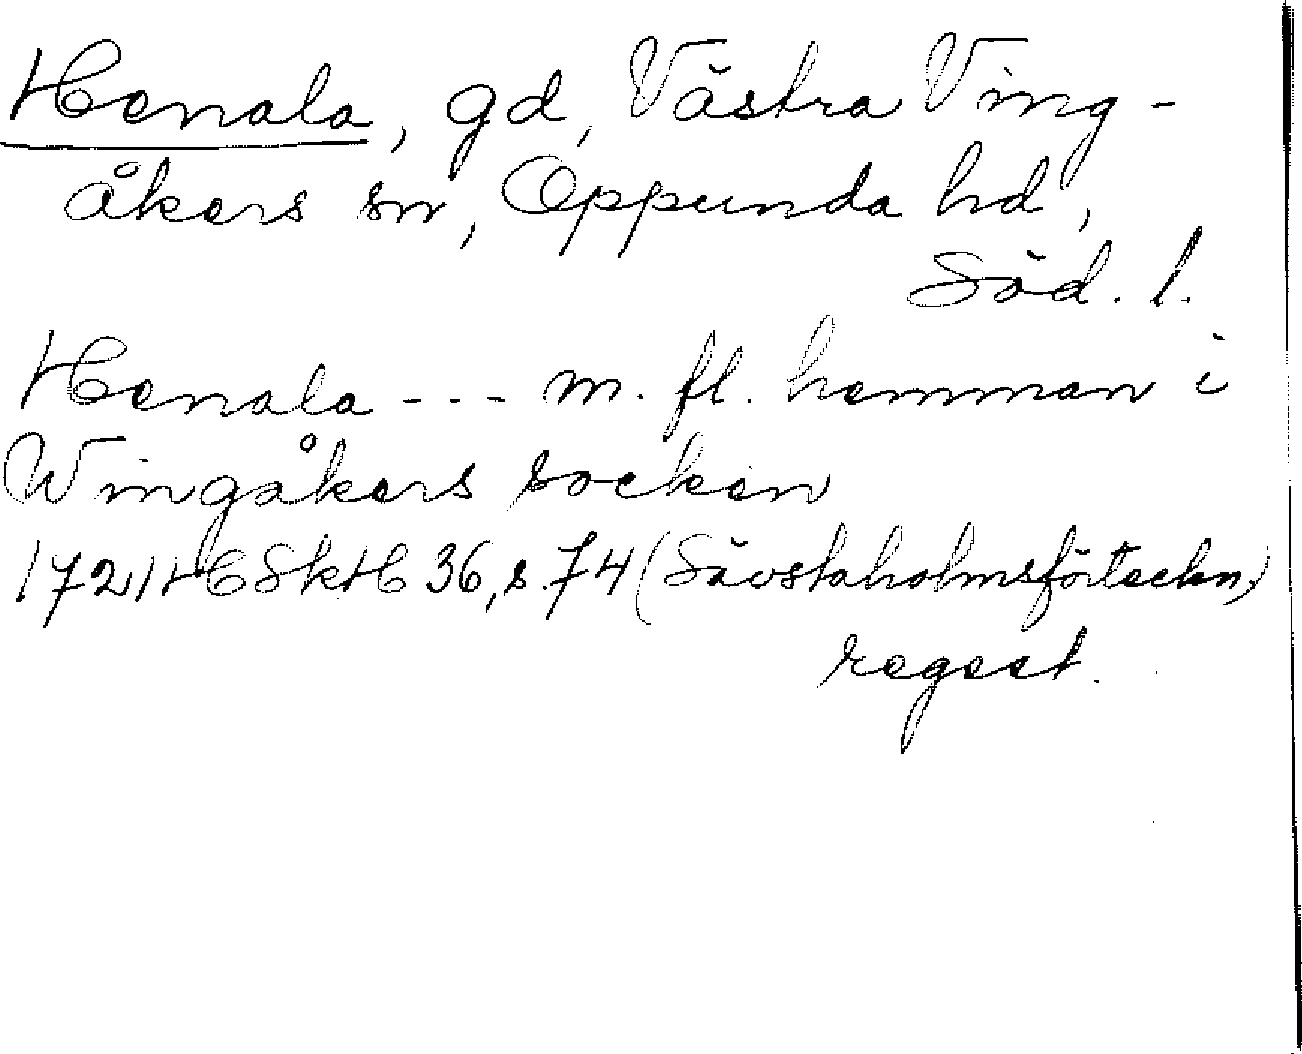 Henala, gd, Västra Ving-
åkers sn, Oppunda hd,
Söd. l.
Henala --- m. fl. hemman i
Wingåkers socken
1721 HSkH 36, s. 74 (Sävstaholmsförteckn.)
regest.